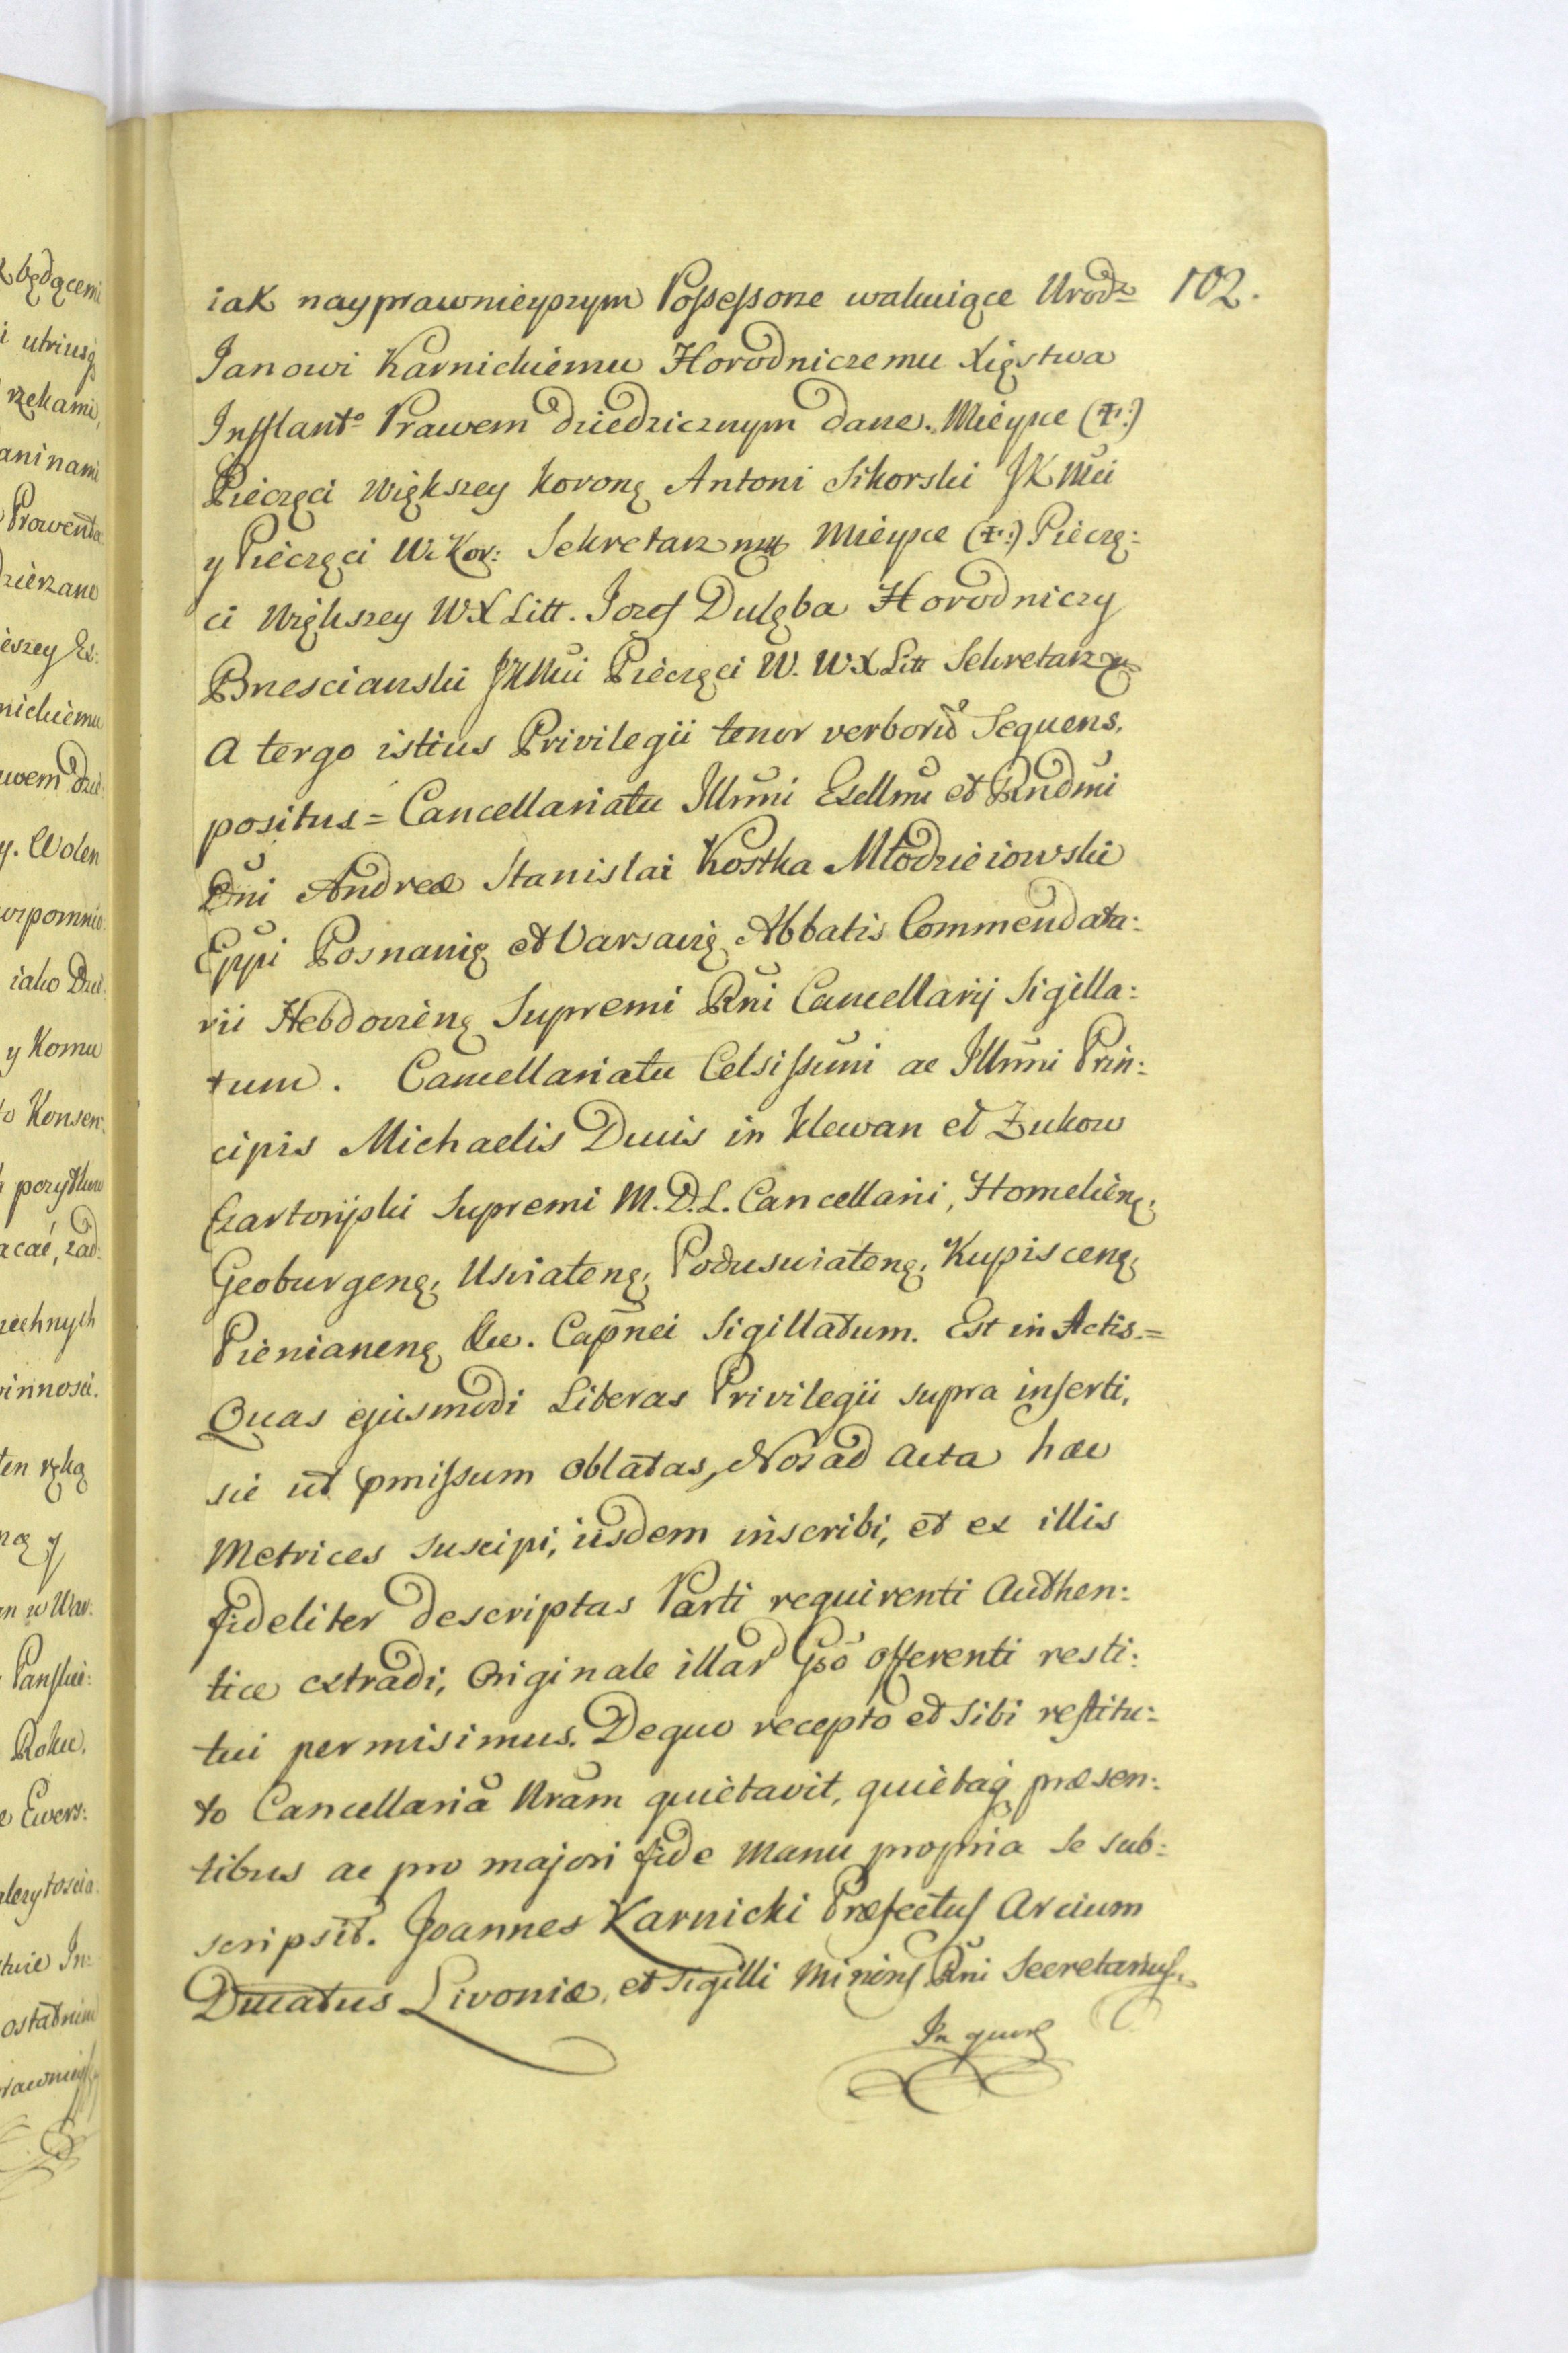 102.
iak nayprawnieyszym Possessorze wakuiące Urodz
Janowi Karnickiemu Horodniczemu Xięstwa
Infflant° Prawem dziedzicznym dane. Mieysce (Ł:)
Pieczęci Większey Koronę Antoni Sikorski JKMci
y Pieczęci W. Kor: Sekretarz mp Mieysce (Ł:) Pieczę:
ci Większey WXLitt. Jozef Dulęba Horodniczy
Brescianski JKMci Pieczęci W. WXLitt Sekretarz
A tergo istius Privilegii tenor verborũ Sequens.
positus = Cancellariatu Illm̃i Excellm̃i et Rndm̃i
Dñi Andreæ Stanislai Kostka Młodzieiowski
Epp̃i Posnanię et Varsavię Abbatis Commendata:
rii Hebdovienę Supremi Rñi Cancellarij Sigilla:
tum. Cancellariatu Celsissimi ac Illm̃i Prin:
cipis Michaelis Ducis in Klewan et Zukow
Czartoryski Supremi M.D.L. Cancellarii, Homelienę,
Geoburgenę, Usviatenę, Podusviatenę, Kupiscenę,
Pienianenę &c. Cap̃nei Sigillatum. Est in Actis.=
Quas ejusmodi Literas Privilegii supra inserti,
sic ut p̃missum oblatas, Nos ad Acta hæc
Metrices suscipi, iisdem inscribi, et ex illis
fideliter descriptas Parti requirenti Authen:
tice extradi, Originale illar̃ Ip̃so offerenti resti:
tui permisimus. De quo recepto et sibi restitu:
to Cancellariã Nr̃am quietavit, quietaq̨ præsen:
tibus ac pro majori fide Manu propria se sub:
scripsit. Joannes Karnicki Præfectus Arcium
Ducatus Livoniæ, et Sigilli Minoris Rñi Secretarius.
In quor̃